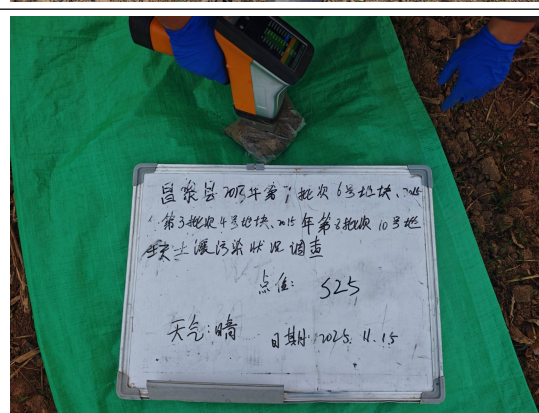 昌黎县2025年第7批次6号地块、2025
第3批次4号地块、2025年第8批次10号地
块土壤污染状况调查
点位: S25
天气:晴 日期:2025.11.15